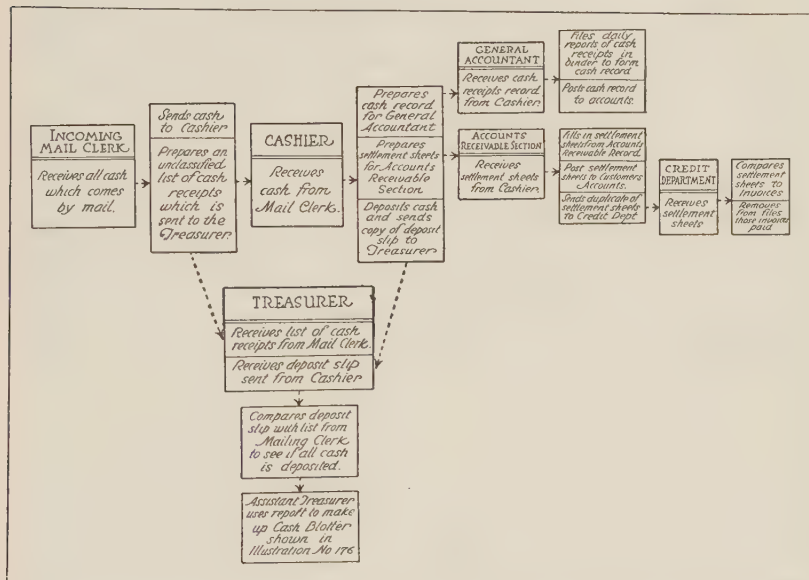 INCOMING
MAIL CLERK
Receives all cash
which comes
by mail.
Sends cash
to Cashier
Prepares an
unclassified
list of cash
receipts
which is
sent to the
Treasurer.
CASHIER
Receives
cash from
Mail Clerk.
Prepares
cash record
for General
Accountant
Prepares
settlement sheets
for Accounts
Receivable
Section
Deposits cash
and sends
copy of deposit
slip to
Treasurer
GENERAL
ACCOUNTANT
Receives cash
receipts record
from Cashier.
Files daily
reports of cash
receipts in
binder to form
cash record
Posts cash record
to accounts.
ACCOUNTS
RECEIVABLE SECTION
Receives
settlement sheets
from Cashier.
Fills in settlement
sheets from Accounts
Receivable Record.
Post settlement
sheets to Customers
Accounts.
Sends duplicate of
settlement sheets
to Credit Dept
CREDIT
DEPARTMENT
Receives
settlement
sheets
Compares
settlement
sheets to
Invoices
Removes
from files
those invoices
paid
TREASURER
Receives list of cash
receipts from Mail Clerk.
Receives deposit slip
sent from Cashier
Compares deposit
slip with list from
Mailing Clerk
to see if all cash
is deposited.
Assistant Treasurer
uses report to make
up Cash Blotter
shown in
Illustration No 176